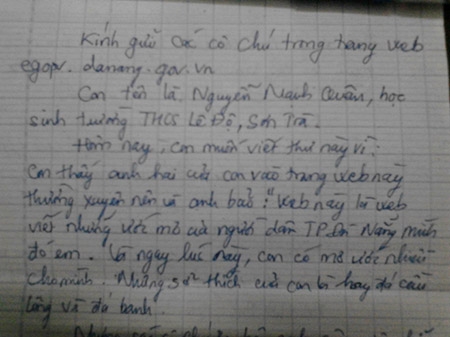 Kính gửi các cô chú trong trang web
egov.danang.gov.vn
Con tên là Nguyễn Mạnh Quân, học
sinh trường THCS Lê Độ, Sơn Trà.
Hôm nay, con muốn viết thư này vì:
Con thấy anh hai của con vào trang web này
thường xuyên nên và anh bảo: "Web này là web
viết những ước mơ của người dân TP. Đà Nẵng mình
đó em. Và ngay lúc này, con có mơ ước
cho mình. Những sở thích của con là hay đá cầu
lông và đá banh.